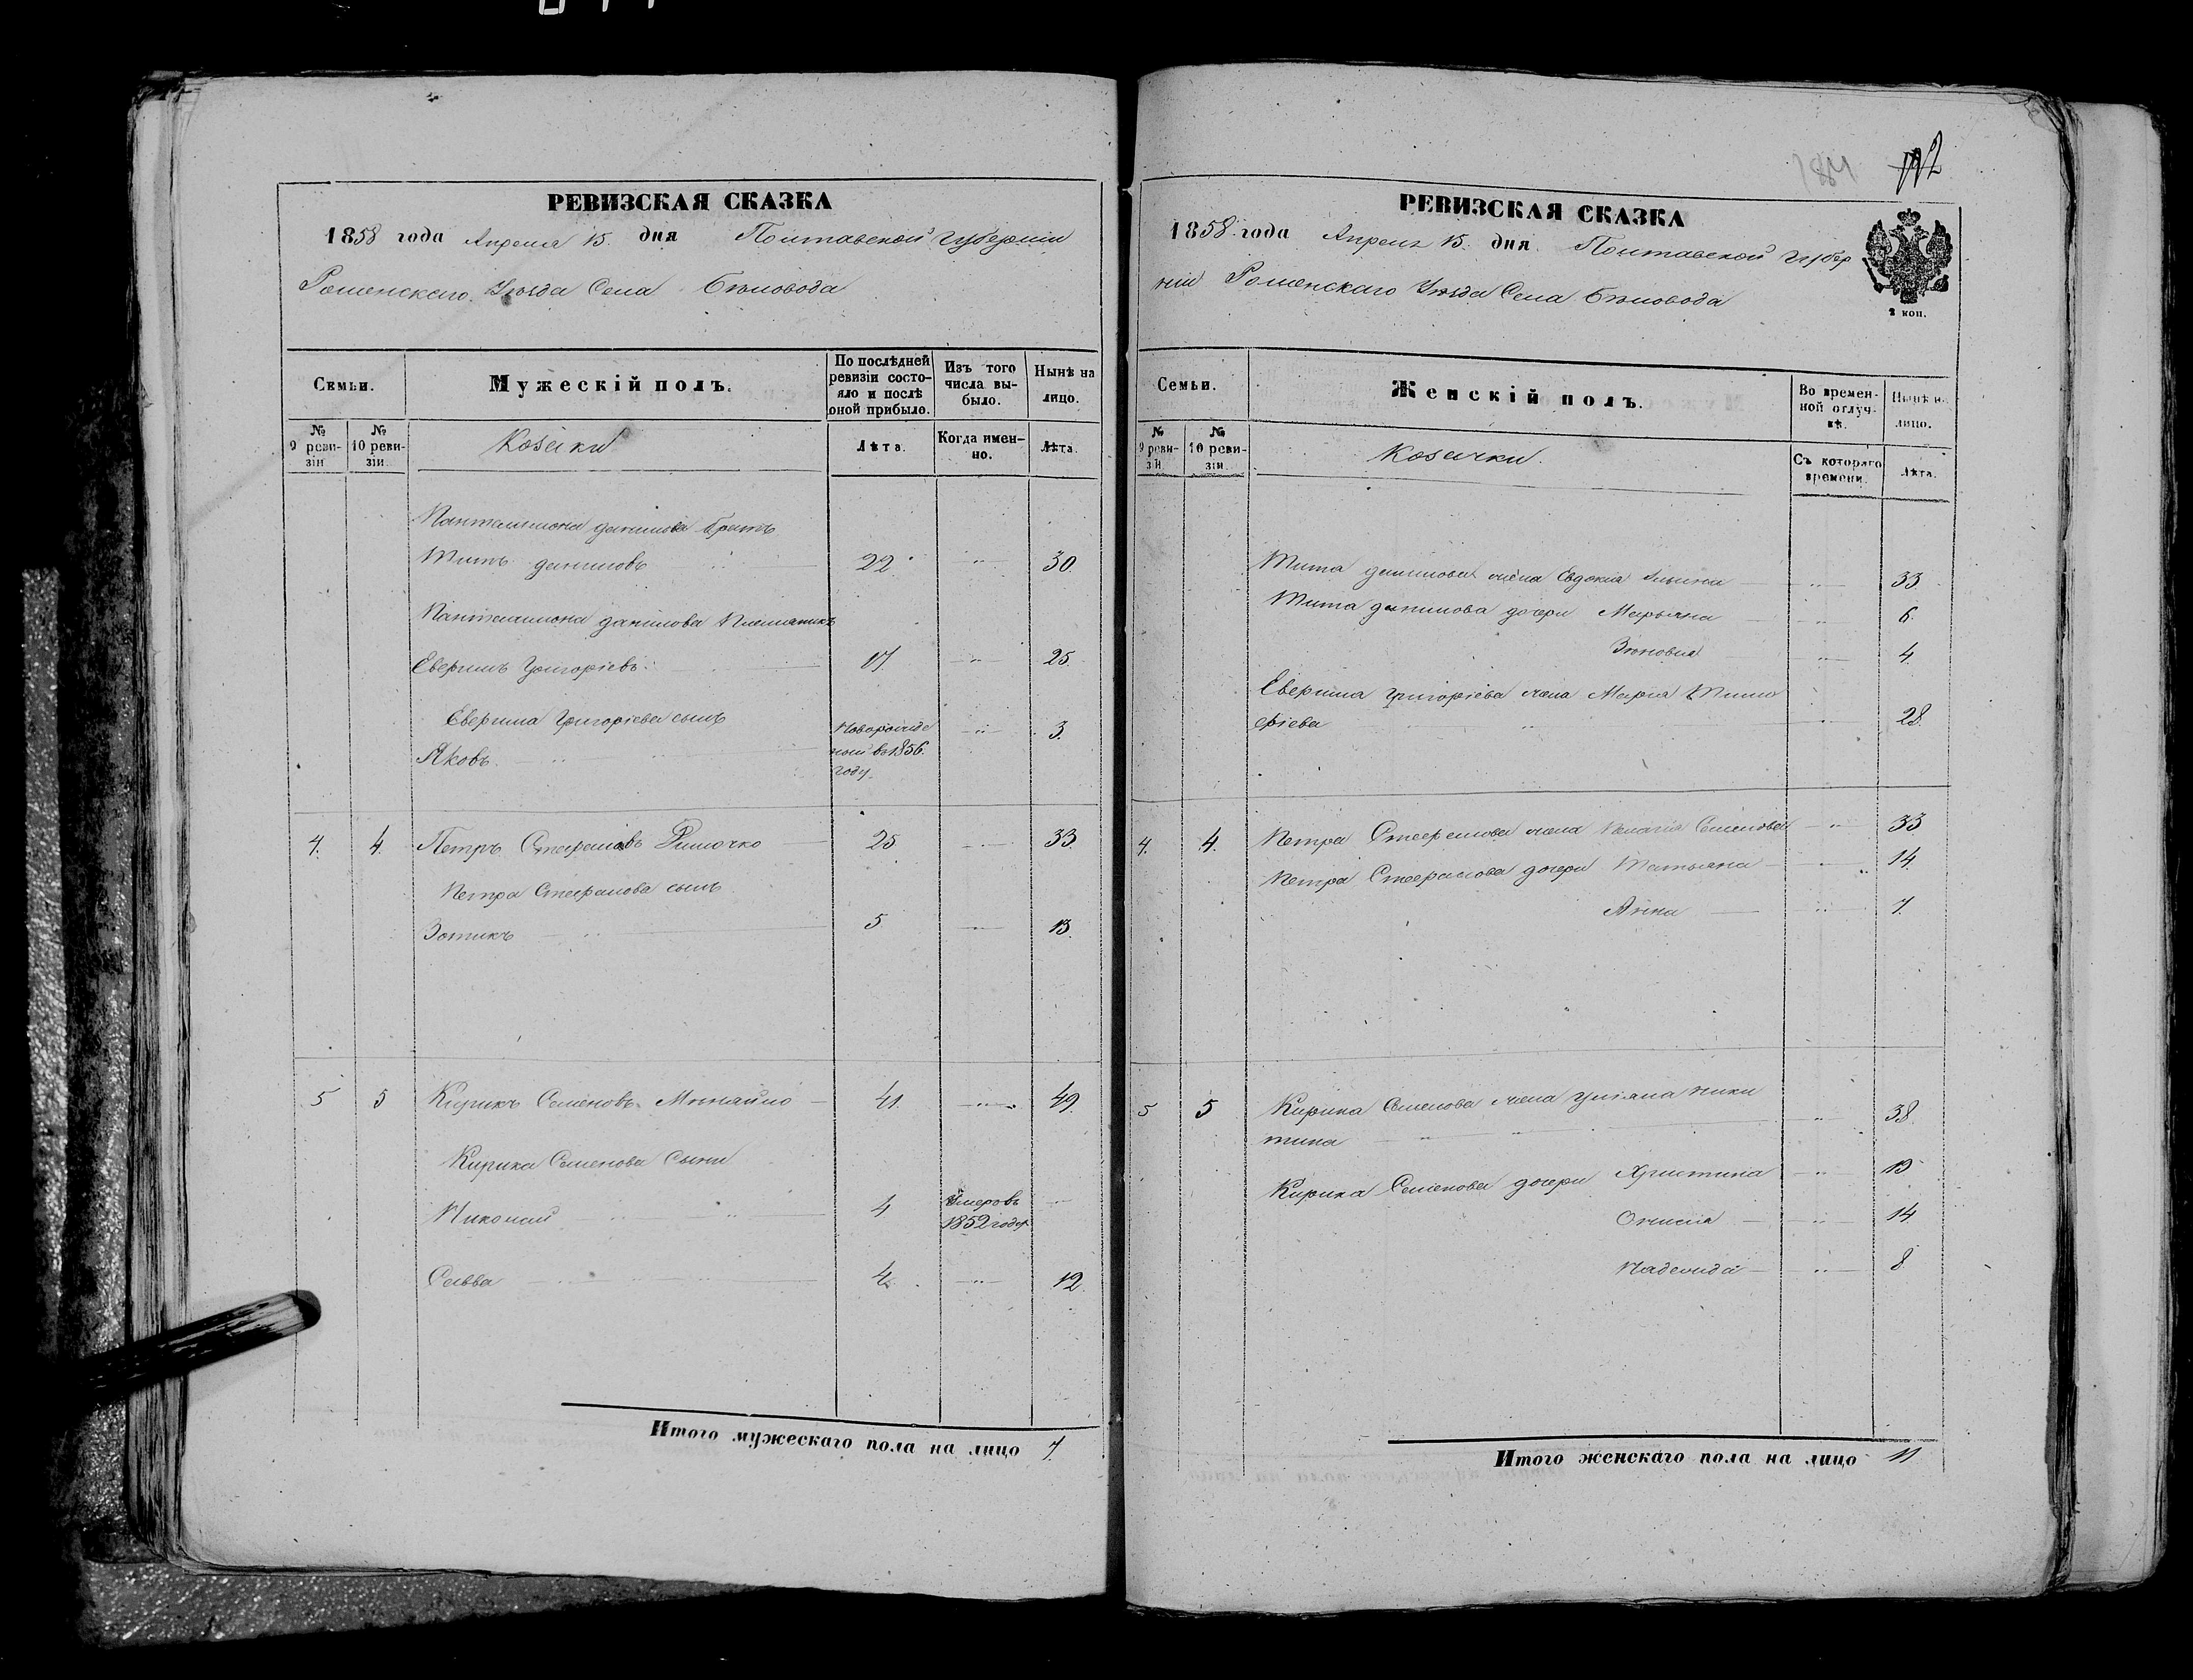 РЕВИЗСКАЯ СКАЗКА
1858 года Апреля 15. дня Полтавской губерніи
Роменскаго Уѣзда Села Бѣловода
Семьи.
Мужескій полъ.
По послѣдней ревизіи состояло и послѣ оной прибыло.
Изъ того числа выбыло.
Нынѣ на лицо.
№ 9 ревизіи
№ 10 ревизіи.
Козаки
Лѣта.
Когда именно.
Лѣта.
Пантелимона данилова братъ
Титъ даниловъ 22 30.
Пантелимона данилова племяникъ
Евергилъ Григоріевъ 17. 25.
Григоріева сынъ
Яковъ. Новорожденый въ 1856. году 3.
4. 4. Петръ Стефановъ 25 33.
Петра Стефанова сынъ
Зотикъ 5 13.
5 5 Кирикъ Семеновъ Михайло 41. 49.
Кирика Семенова Сыни
Николай 4 Умеръ въ 1852 годе
Савва 4. 12.
Итого мужескаго пола на лицо 7.
РЕВИЗСКАЯ СКАЗКА
1858 года Апреля 15. дня Полтавской губер
ніи Роменскаго Уѣзда Села Бѣловода
2 коп.
Семьи.
Женскій полъ.
Во временной отлучкѣ.
Нынѣ на лицо.
№ 9 ревизіи.
№ 10 ревизіи.
Козачки.
Съ котораго времени.
Лѣта.
Тита данилова жена Евдокія 33
Тита данилова дочери Марьяна 6.
Зѣновия 4.
Григоріева жена Марія Тимо
фіева 28.
4. 4. Петра Стефанова жена Пелагія Семенова 33
Петра Стефанова дочери Татьяна 14.
Анна 7.
5 5 Кирика Семенова жена Уліяна Ники
тина 38
Кирика Семенова дочери Христина
14
8
Итого женскаго пола на лицо 11